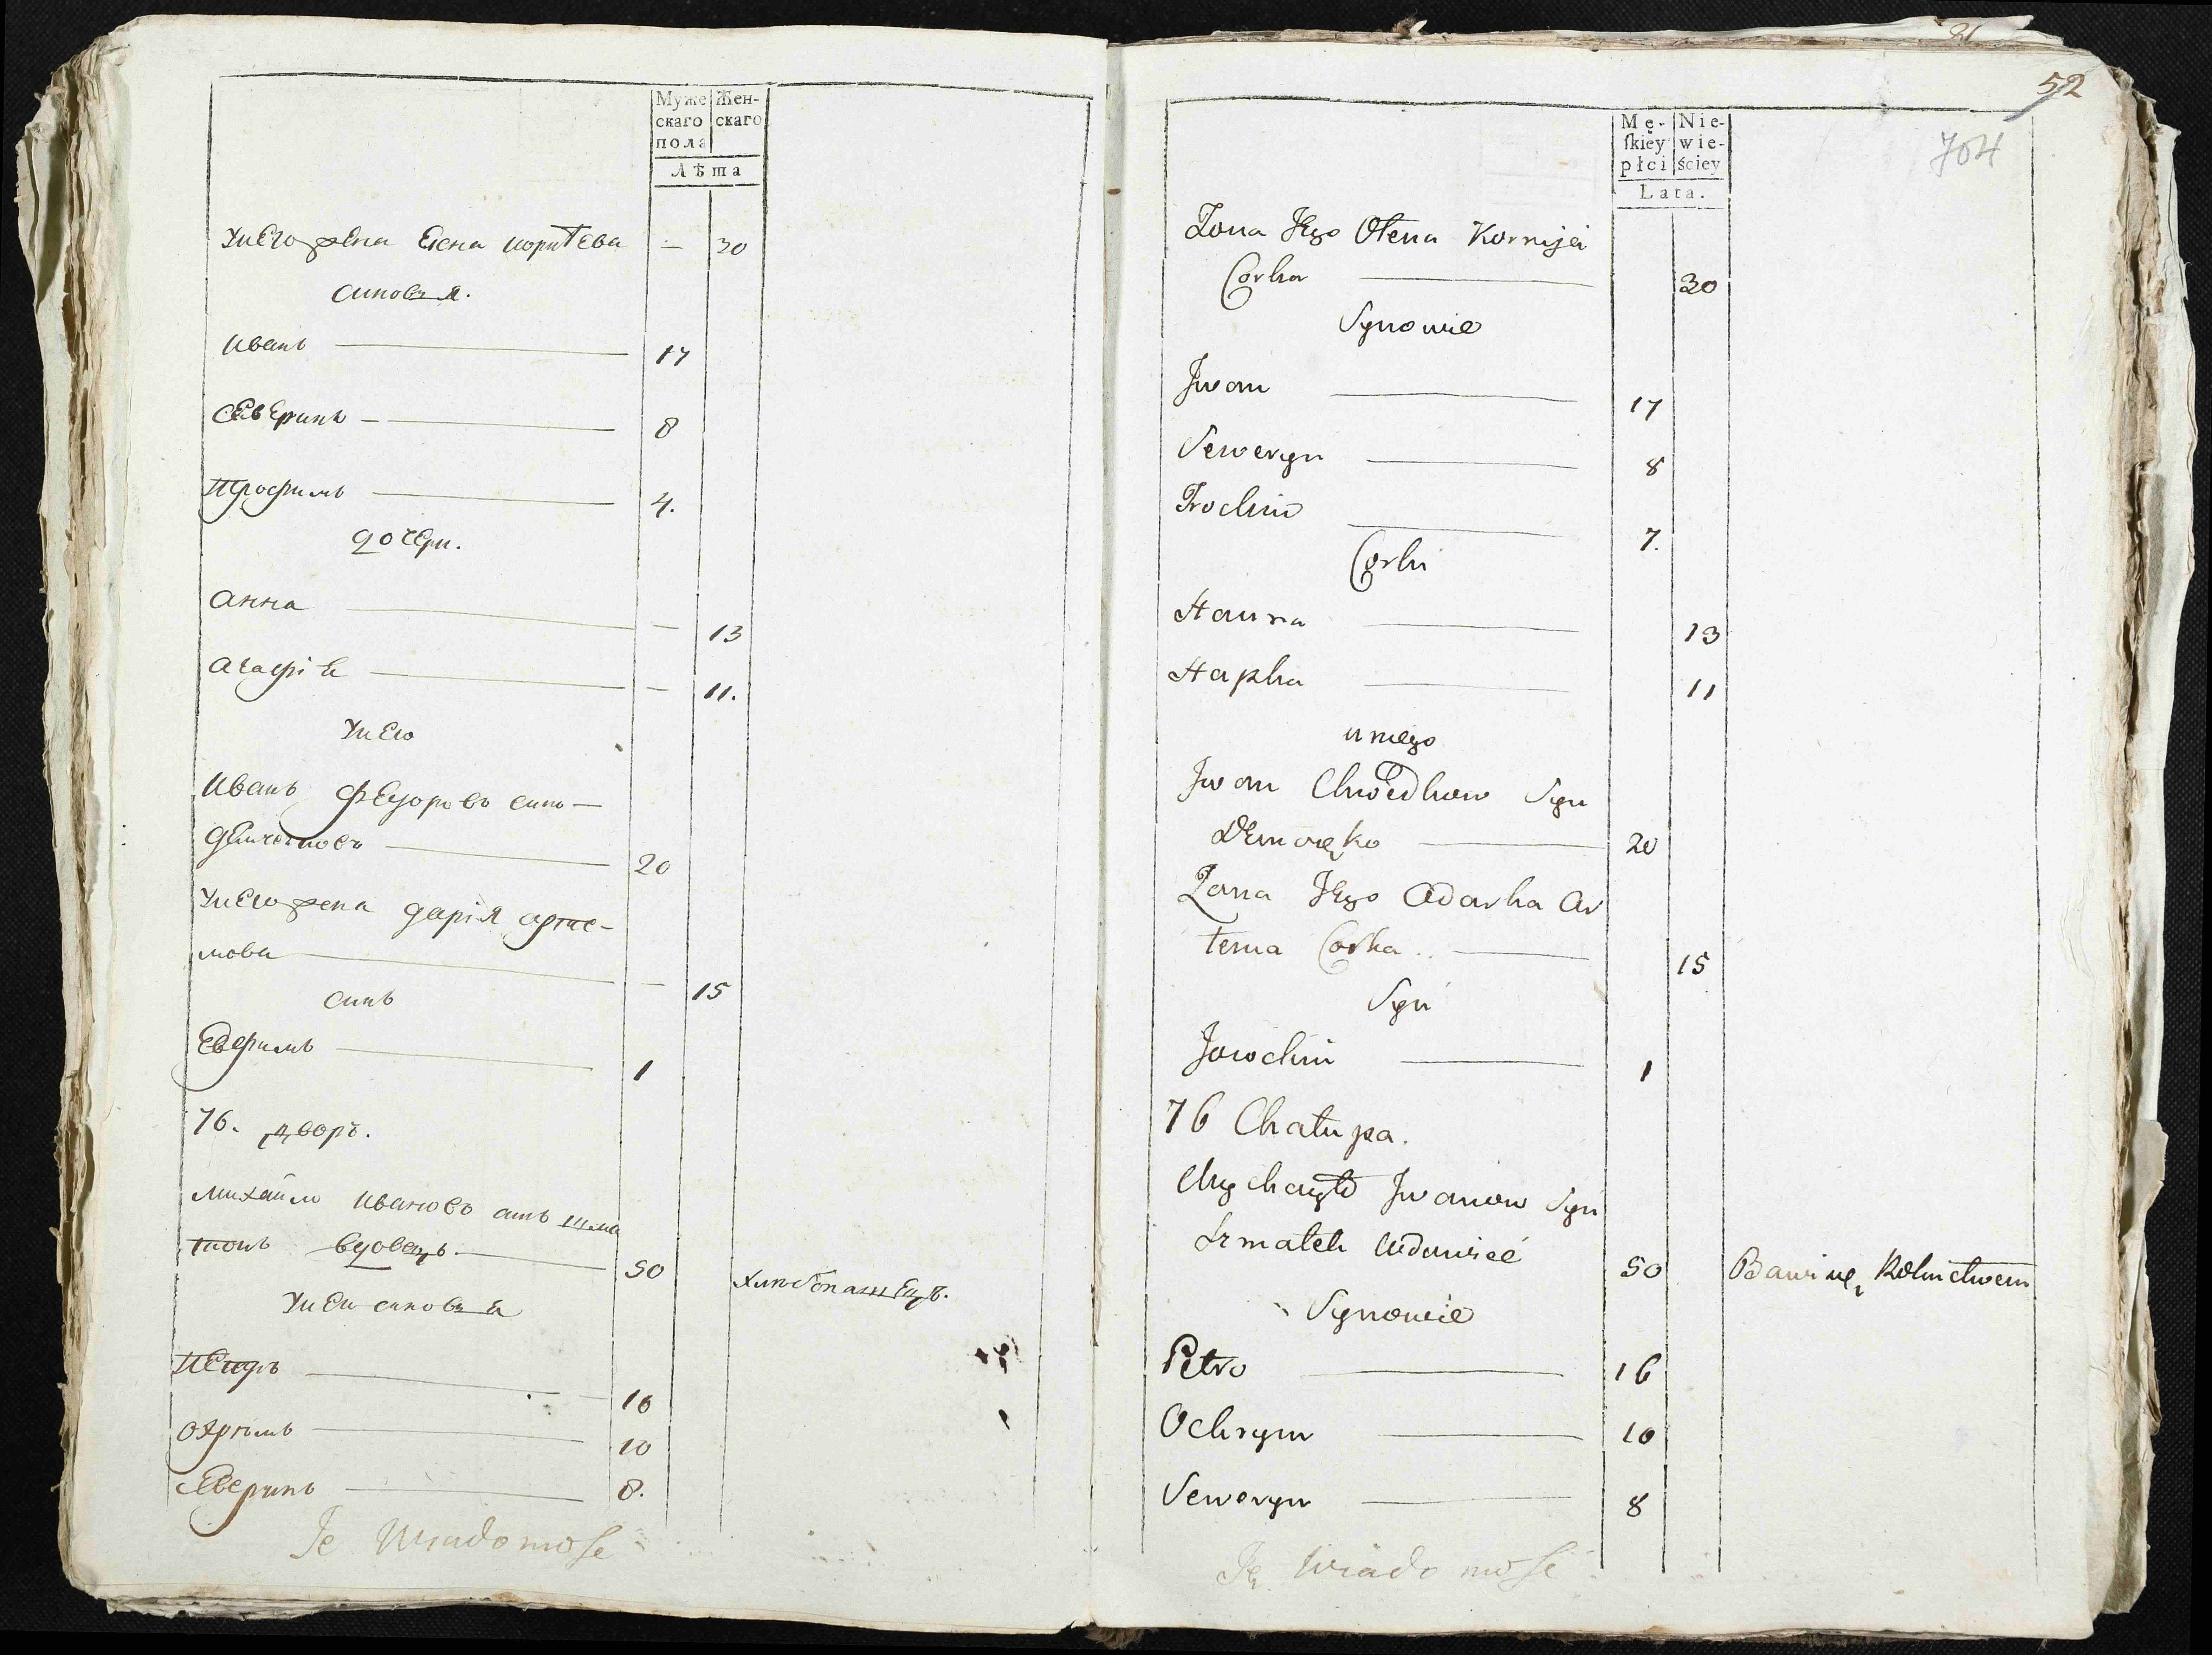 Муже
скаго
пола
Жен-
скаго
Лѣта
У него жена Елена корнѣева — 30
синовья.
Иванъ 17
Северинъ — 8
Трофимъ 4.
дочери.
Анна — 13
Агафiѣ — 11.
У него
Иванъ Федоровъ синъ —
20
У него жена дарiя арте-
мова — 15
синъ
Евфимъ 1
76. дворъ.
Михайло Ивановъ синъ
вдовецъ. 50 хлѣбопашецъ.
У него синовья
Петръ 16
Охримъ 10
Северинъ 8.
Te Wiadomosc
81
52
704
Mę-
skiey
płci
Nie-
wie-
ściey
Lata.
Żona Jego Olena Kornija
Corka 30
Synowie
Jwan 17
Seweryn 8
Trochim 7.
Corki
Hanna 13
Hapka 11
u niego
Jwan Chwedkow Syn
20
Żona Jego Odarka Ar
tema Corka .. 15
Syn
Jowchim 1
76 Chałupa.
Mychayło Jwanow Syn
Szmateli Wdowiec 50 Bawi się Rolnictwem
Synowie
Petro 16
Ochrym 10
Seweryn 8
Tę Wiadomość